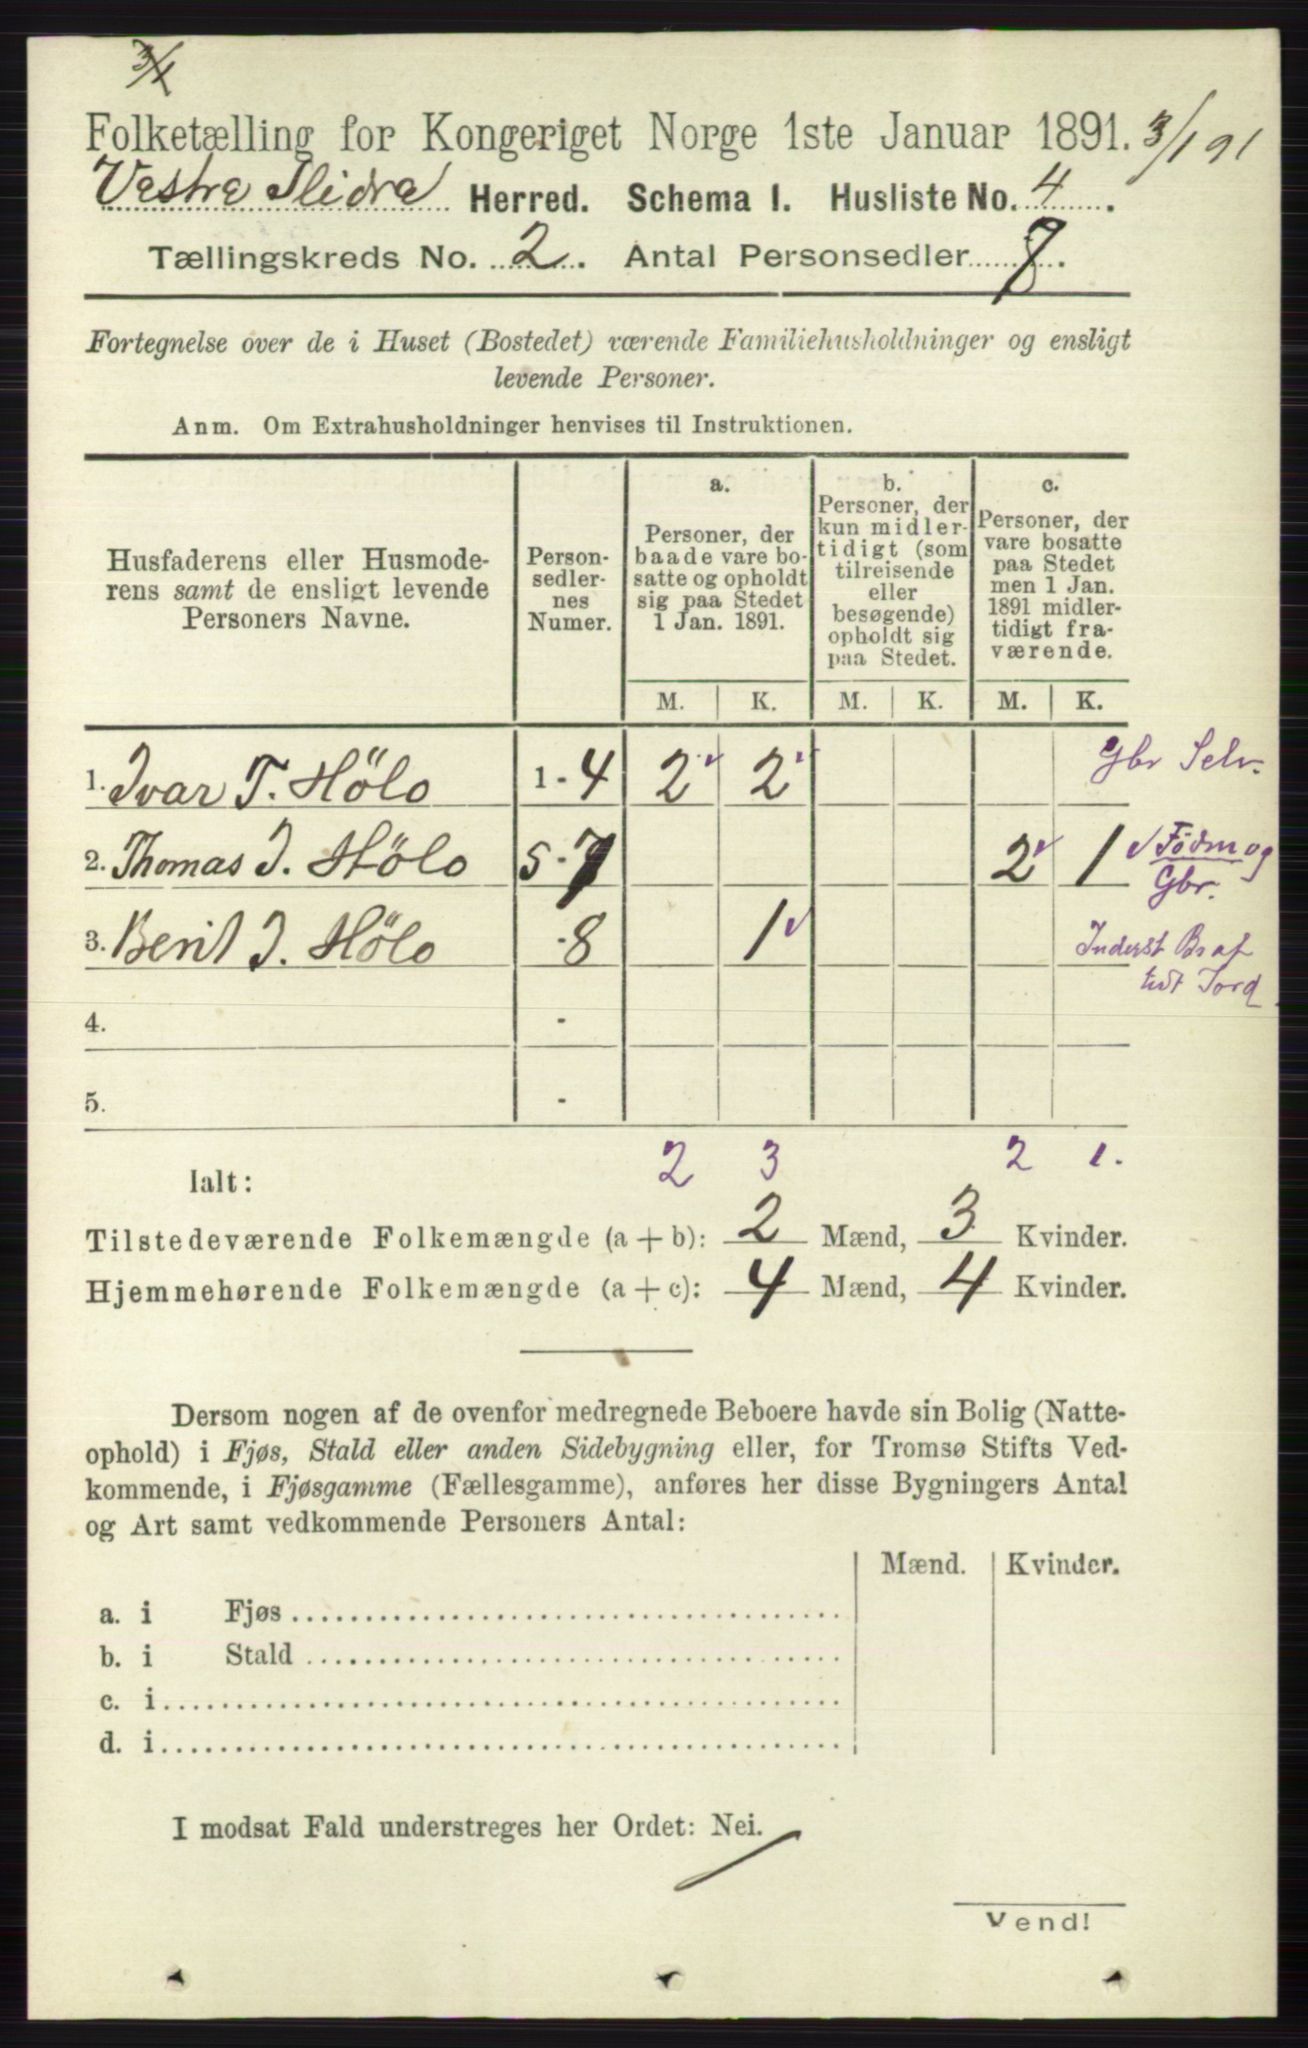 3/1
Folketælling for Kongeriget Norge 1ste Januar 1891. 3/1 91
Vestre Slidre Herred. Schema I. Husliste No. 4.
Tællingskreds No. 2. Antal Personsedler 7.
Fortegnelse over de i Huset (Bostedet) værende Familiehusholdninger og ensligt
levende Personer.
Anm. Om Extrahusholdninger henvises til Instruktionen.
Husfaderens eller Husmode-
rens samt de ensligt levende
Personers Navne.
Person-
sedler-
nes
Numer.
a.
Personer, der
baade vare bo-
satte og opholdt
sig paa Stedet
1 Jan. 1891.
b.
Personer, der
kun midler-
tidigt (som
tilreisende
eller
besøgende)
opholdt sig
paa Stedet.
c.
Personer, der
vare bosatte
paa Stedet
men 1 Jan.
1891 midler-
tidigt fra-
værende.
M. K. M. K. M. K.
1. Ivar T. Hölo 1-4 2 2 Gbr Selv.
2. Thomas I. Hölo 5-7 2 1 Födm og
Gbr.
3. Berit I. Hölo -8 1 Inderst Br af
lidt Jord
4. -
5. -
2 3 2 1.
Ialt:
Tilstedeværende Folkemængde (a + b): 2 Mænd, 3 Kvinder.
Hjemmehørende Folkemængde (a + c): 4 Mænd, 4 Kvinder.
Dersom nogen af de ovenfor medregnede Beboere havde sin Bolig (Natte-
ophold) i Fjøs, Stald eller anden Sidebygning eller, for Tromsø Stifts Ved-
kommende, i Fjøsgamme (Fællesgamme), anføres her disse Bygningers Antal
og Art samt vedkommende Personers Antal:
Mænd. Kvinder.
a. i Fjøs
b. i Stald
c. i
d. i
I modsat Fald understreges her Ordet: Nei.
Vend!